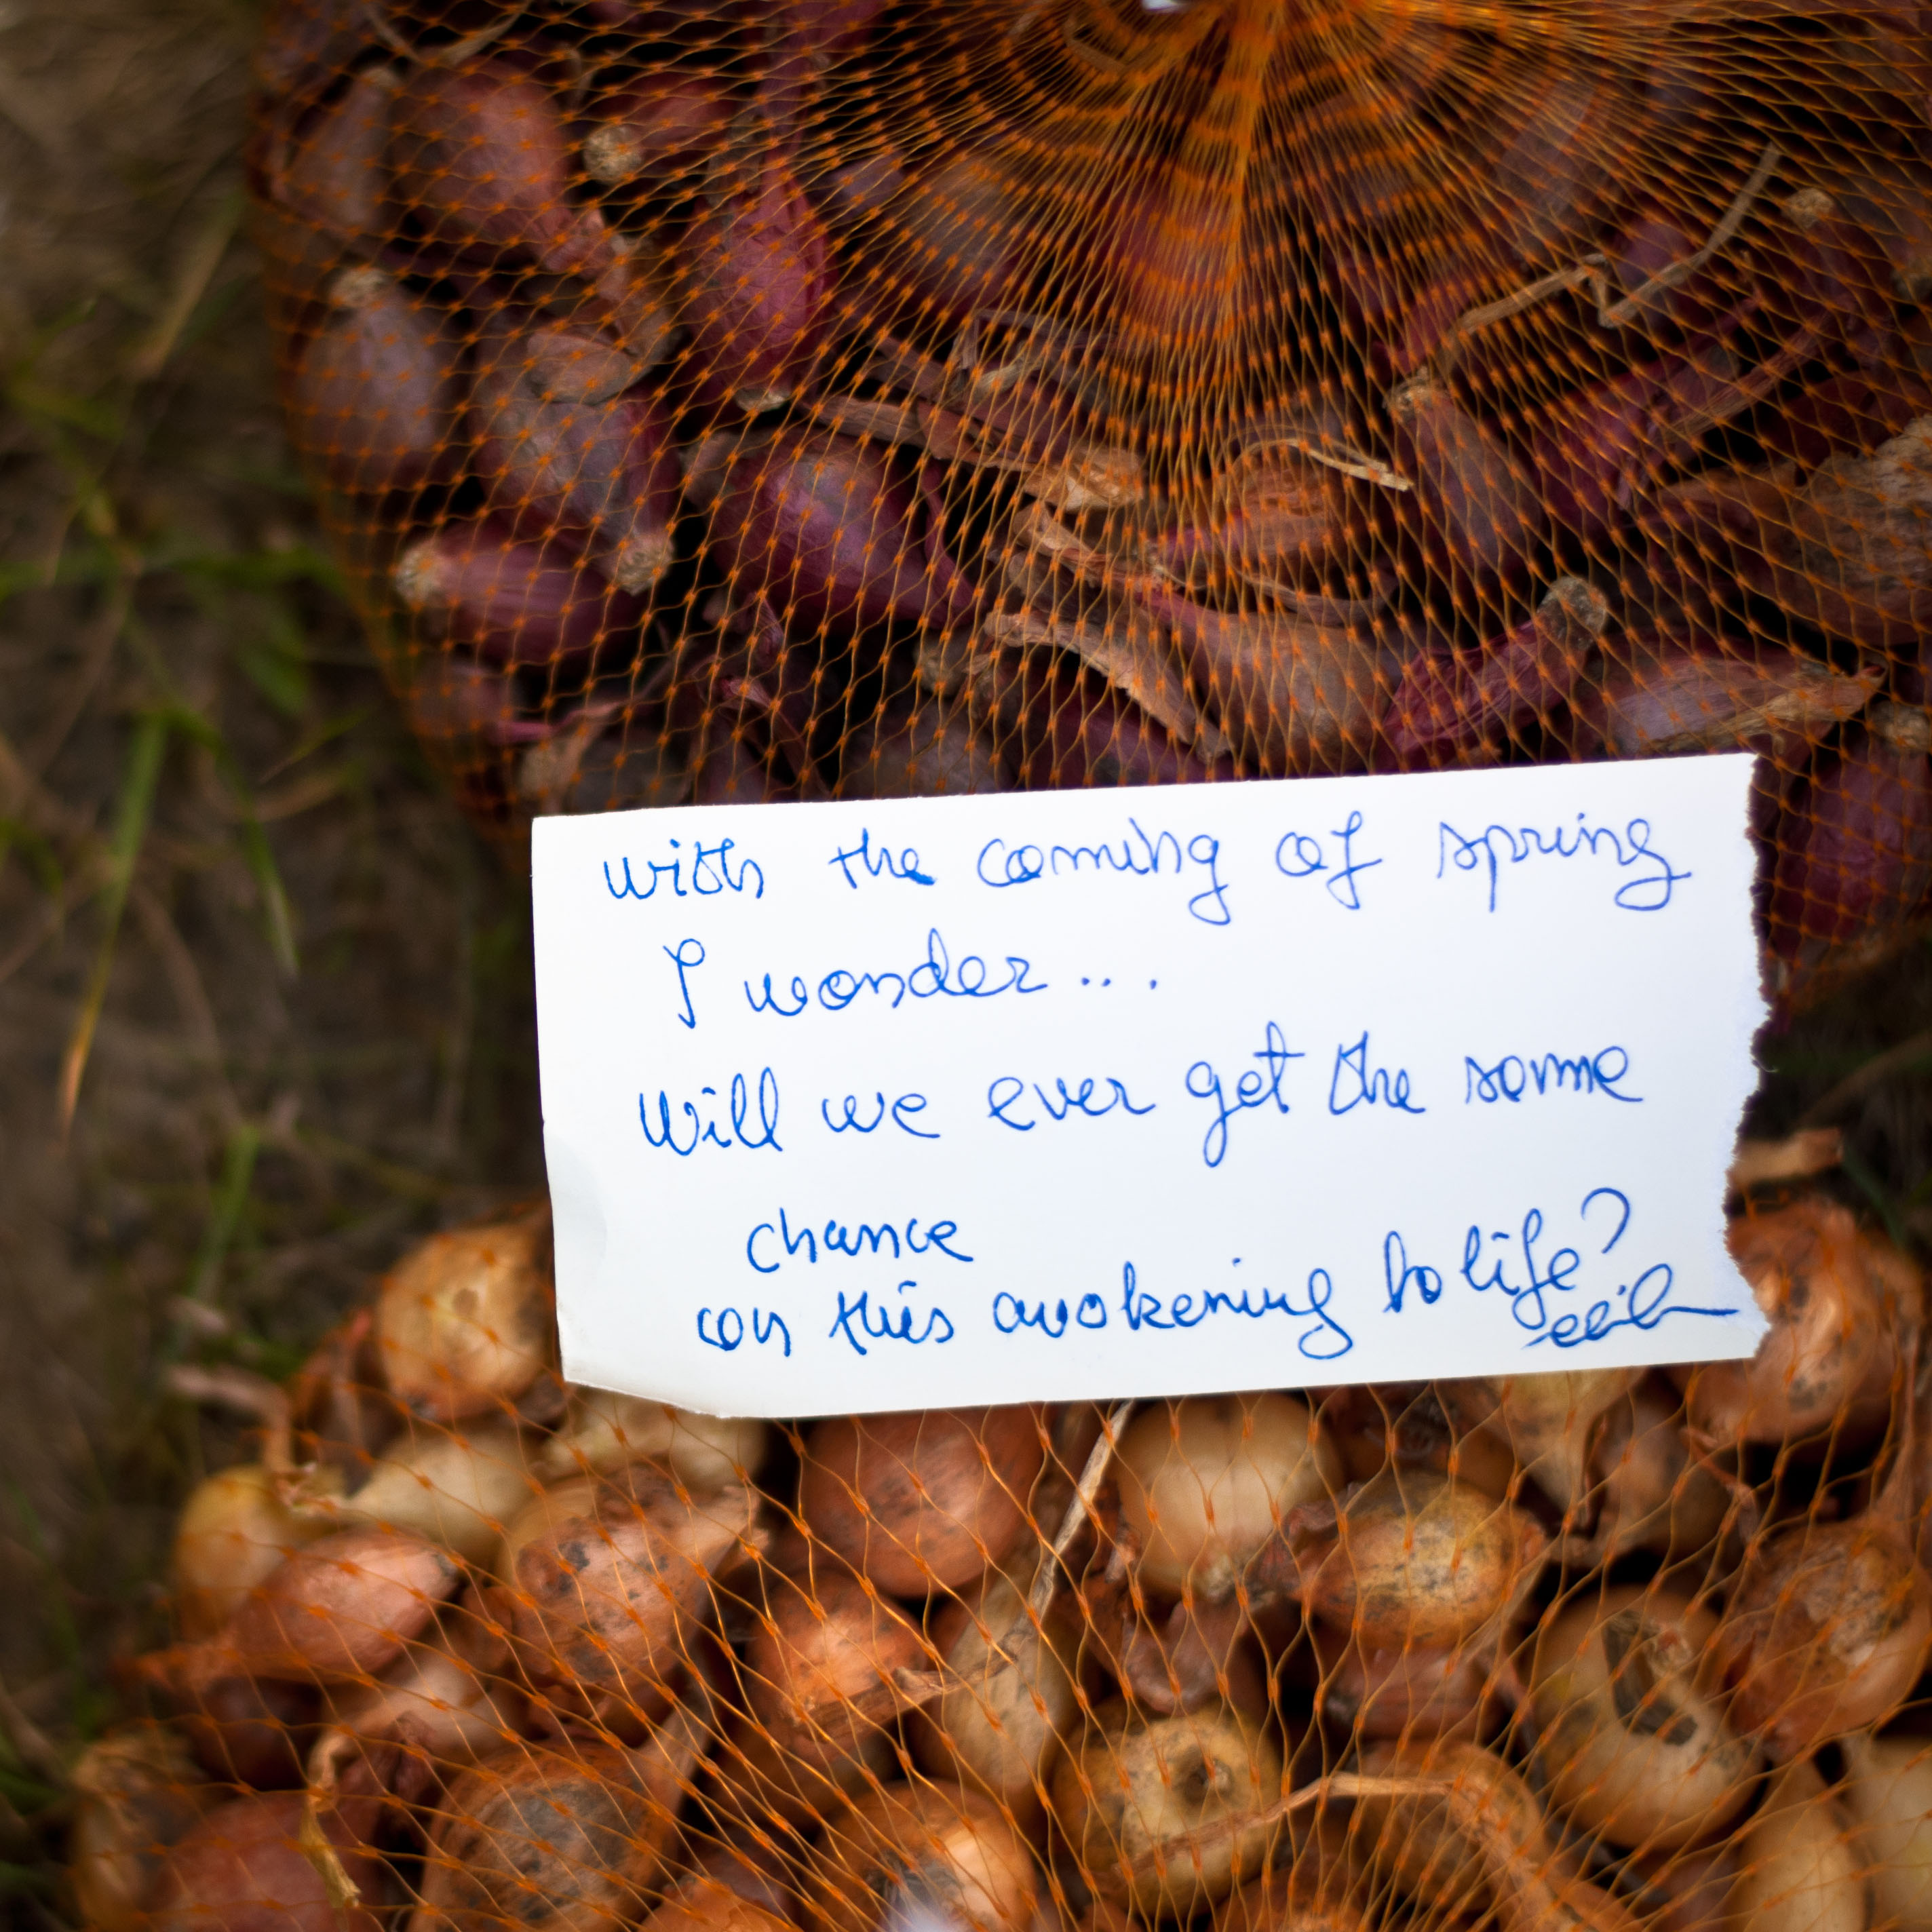 with the coming of spring
I wonder...
Will we ever get the same
chance
on this awakening to life?